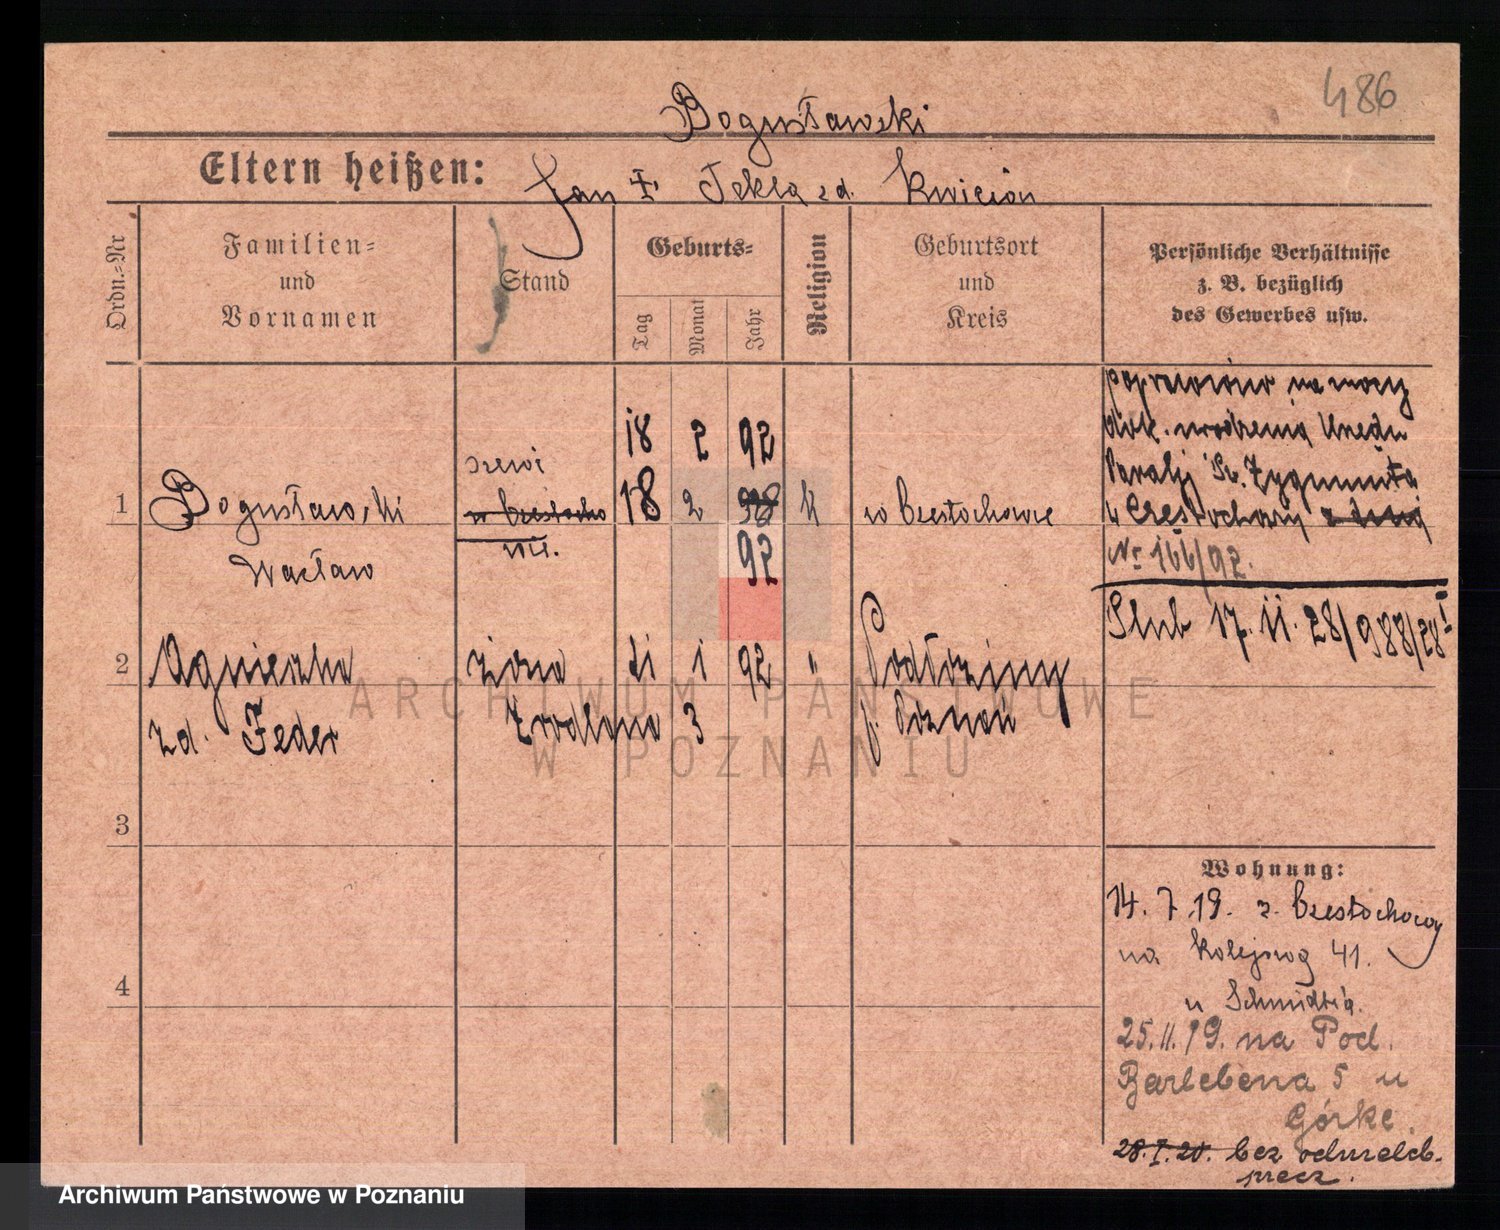 486
Bogusławski
Eltern heißen:
Jan i Tekla zd. Kwiecień
Ordn.=Nr
Familien=
und
Vornamen
Stand
Geburts=
Tag
Monat
Jahr
Religion
Geburtsort
und
Kreis
Persönliche Verhältnisse
z. B. bezüglich
des Gewerbes usw.
poprawiono na mocy
dok. urodzenia Urzędu
Parafij Św. Zygmunta
w Częstochowy
Nr 166/92.
18 2 92
szewc
1
Bogusławski
18 2
k
w Czestochowie
92
Wacław
Ślub 17. II. 28/988/28
2
Agnieszka
żona
21 1 92
"
zd. Feder
3
p. Poznań
3
4
Wohnung:
14. 7. 19. z Czestochowy
na Kolejową 41.
u Schmidta.
25. 11. 19. na Pod.
Barlebena 5 u
Górke.
28. I. 20. bez odmeldb.
precz.
ARCHIWUM PAŃSTWOWE
W POZNANIU
Archiwum Państwowe w Poznaniu